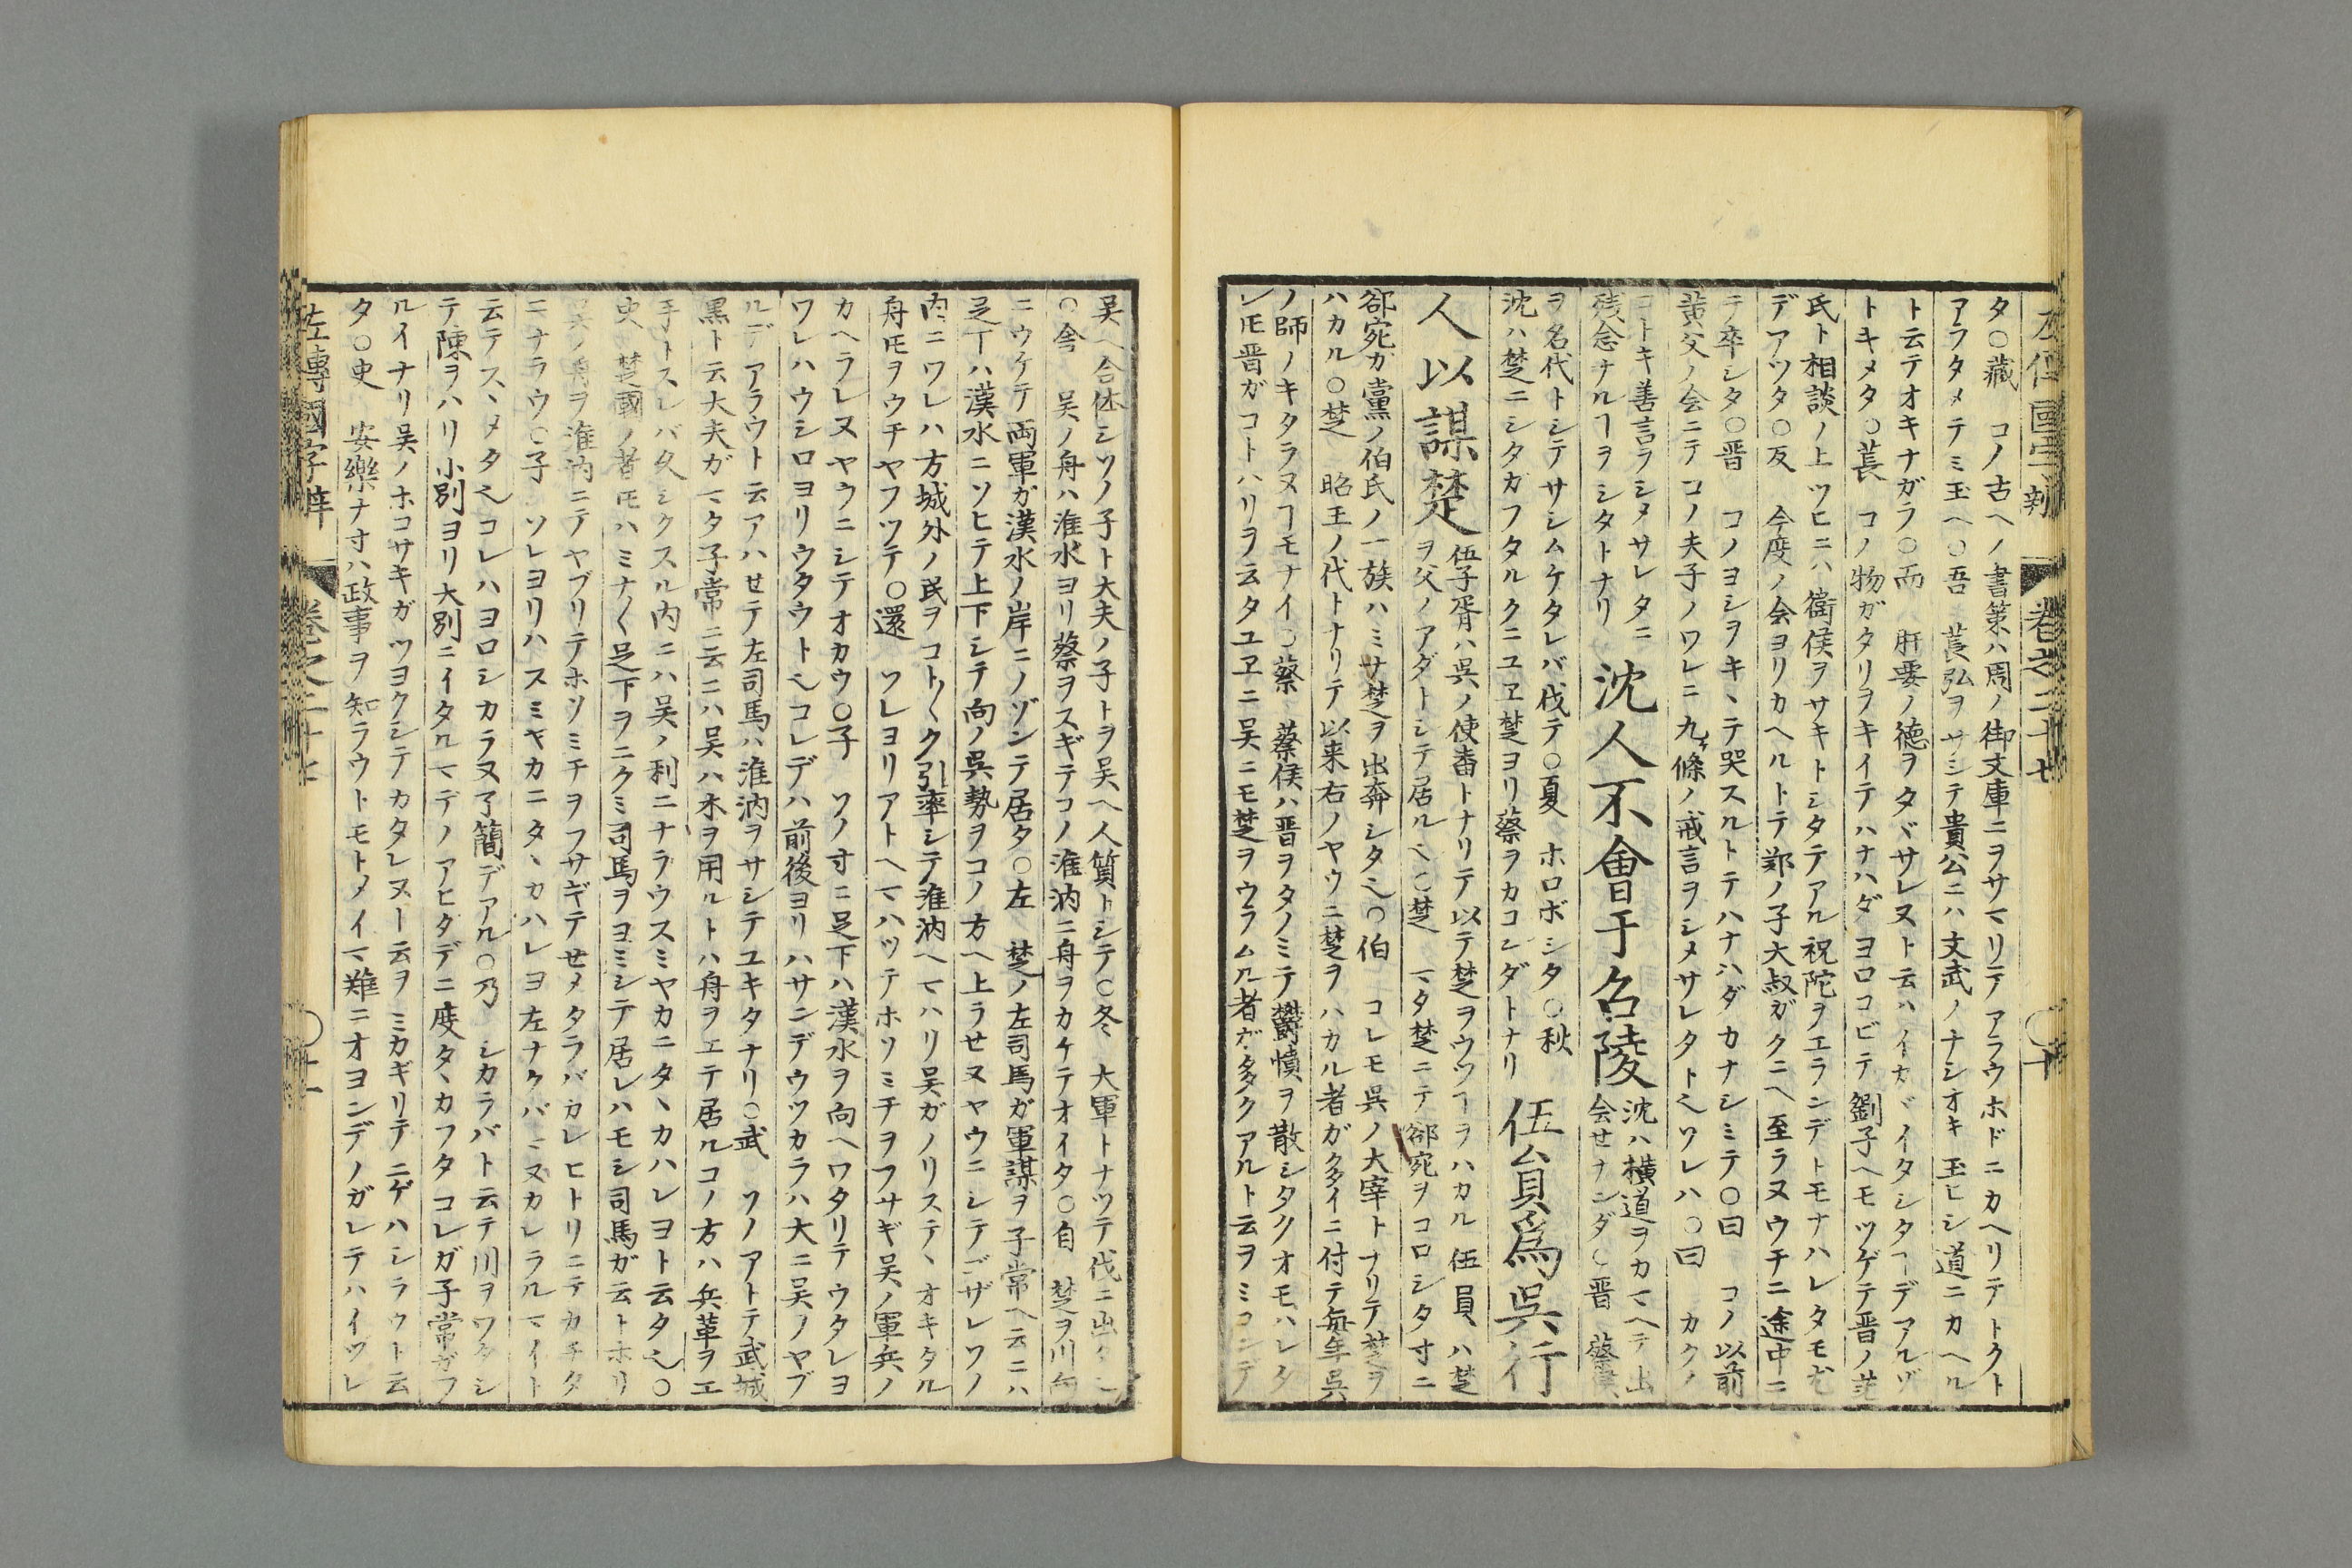 左傳國字辨 卷之二十七 〇十
タ〇藏 コノ古ヘノ書策ハ周ノ御文庫ニヲサマリテアラウホドニカヘリテトクト
アラタメテミ玉ヘ〇吾 萇弘ヲサシテ貴公ニハ文武ノナシオキ玉ヒシ道ニカヘル
ト云テオキナガラ〇而 肝要ノ徳ヲタヾサレヌト云ハイカヾイタシタヿデアルゾ
トキメタ〇萇 コノ物ガタリヲキイテハナハダヨロコビテ劉子ヘモツゲテ晋ノ范
氏ト相談ノ上ツヒニハ衞侯ヲサキトシタテアル祝陀ヲエランデトモナハレタモ尤
デアツタ〇反 今度ノ会ヨリカヘルトテ郑ノ子大叔ガクニヘ至ラヌウチニ途中ニ
テ卒シタ〇晋 コノヨシヲキヽテ哭スルトテハナハダカナシミテ〇曰 コノ以前
黄父ノ会ニテコノ夫子ノワレニ九ケ條ノ戒言ヲシメサレタト也ソレハ〇曰 カクノ
コトキ善言ヲシメサレタニ
残念ナルヿヲシタトナリ
沈人不會于召陵
沈ハ横道ヲカマヘテ出
会セナンダ〇晋 蔡侯
ヲ名代トシテサシムケタレバ伐テ〇夏 ホロボシタ〇秋
沈ハ楚ニシタガフタルクニユヱ楚ヨリ蔡ヲカコンダトナリ
伍員爲呉ノ行
人以謀楚
伍子胥ハ呉ノ使番トナリテ以テ楚ヲウツヿヲハカル伍員ハ楚
ヲ父ノアダトシテ居ル也〇楚 マタ楚ニテ郤宛ヲコロシタ寸ニ
郤宛カ黨ノ伯氏ノ一族ハミサ楚ヲ出奔シタ也〇伯 コレモ呉ノ大宰トナリテ楚ヲ
ハカル〇楚 昭王ノ代トナリテ以来右ノヤウニ楚ヲハカル者ガ多イニ付テ毎年呉
ノ師ノキタラヌヿモナイ〇蔡 蔡侯ハ晋ヲタノミテ鬱憤ヲ散シタクオモハレタ
レ𪜈晋ガコトハリヲ云タユヱニ吴ニモ楚ヲウラムル者ガ多クアルト云ヲミコンデ
吴ヘ合体シソノ子ト大夫ノ子トヲ吴ヘ人質トシテ〇冬 大軍トナツテ伐ニ出タ也
〇舍 吴ノ舟ハ淮水ヨリ蔡ヲスギテコノ淮汭ニ舟ヲカケテオイタ〇自 楚ヲ川向
ニウケテ両軍ガ漢水ノ岸ニノゾンテ居タ〇左 楚ノ左司馬ガ軍謀ヲ子常ヘ云ニハ
足下ハ漢水ニソヒテ上下シテ向ノ呉勢ヲコノ方ヘ上ラせヌヤウニシテゴザレソノ
内ニワレハ方城外ノ民ヲコト〱ク引率シテ淮汭ヘマハリ吴ガノリステヽオキタル
舟𪜈ヲウチヤフツテ〇還 ソレヨリアトヘマハツテホソミチヲフサギ吴ノ軍兵ノ
カヘラレヌヤウニシテオカウ〇子 ソノ寸ニ足下ハ漢水ヲ向ヘワタリテウタレヨ
ワレハウシロヨリウタウト也コレデハ前後ヨリハサンデウツカラハ大ニ吴ノヤブ
ルデアラウト云アハせテ左司馬ハ淮汭ヲサシテユキタナリ〇武 ソノアトテ武城
黒ト云大夫ガマタ子常ニ云ニハ吴ハ木ヲ用ルトハ舟ヲエテ居ルコノ方ハ兵革ヲエ
手トスレバ久シクスル内ニハ吴ノ利ニナラウスミヤカニタヽカハレヨト云タ也〇
史 楚國ノ者𪜈ハミナ〱足下ヲニクミ司馬ヲヨミシテ居レハモシ司馬ガ云トホリ
呉ノ舟ヲ淮汭ニテヤブリテホソミチヲフサギテせメタラバカレヒトリニテカチタ
ニナラウ〇子 ソレヨリハスミヤカニタヽカハレヨ左ナクバマヌカレラルマイト
云テスヽメタ也コレハヨロシカラヌ了簡デアル〇乃 シカラバト云テ川ヲワタシ
テ陳ヲハリ小別ヨリ大別ニイタルマデノアヒタデニ度タヽカフタコレガ子常ガフ
ルイナリ吴ノホコサキガツヨクシテカタレヌト云ヲミカギリテニゲハシラウト云
タ〇史 安樂ナ寸ハ政事ヲ知ラウトモトメイマ難ニオヨンデノガレテハイツレ
左傳國字辨 卷之二十七 〇十一